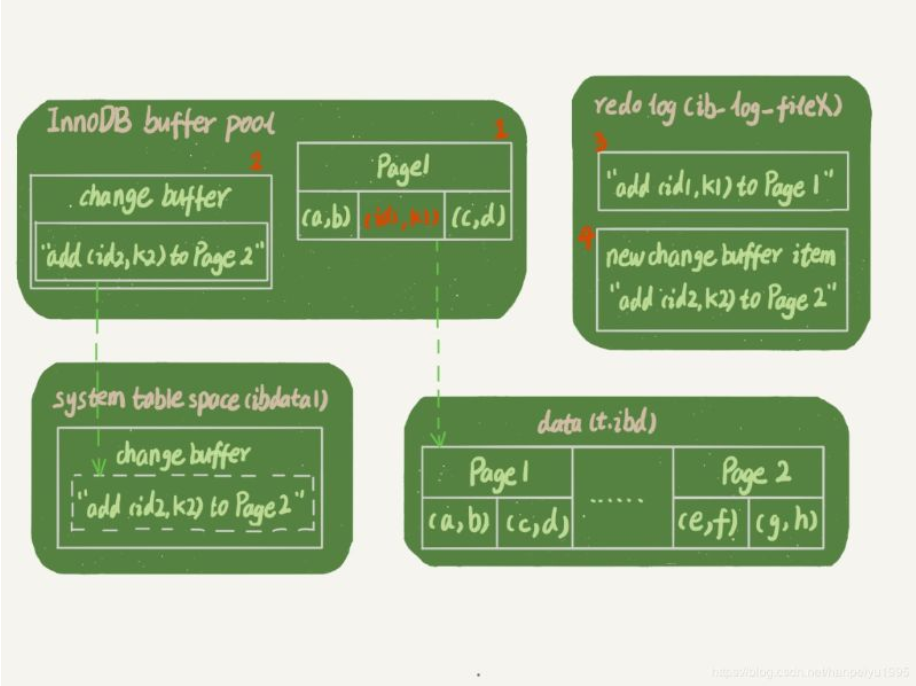 InnoDB buffer pool
2
change buffer
"add (id2,k2) to Page 2"
1
Page1
(a,b) (id1,k1) (c,d)
redo log (ib_log_fileX)
3
"add (id1,k1) to Page 1"
4
new change buffer item
"add (id2,k2) to Page 2"
system table space (ibdata1)
change buffer
"add (id2,k2) to Page 2"
data (t.ibd)
Page 1 ...... Page 2
(a,b) (c,d) (e,f) (g,h)